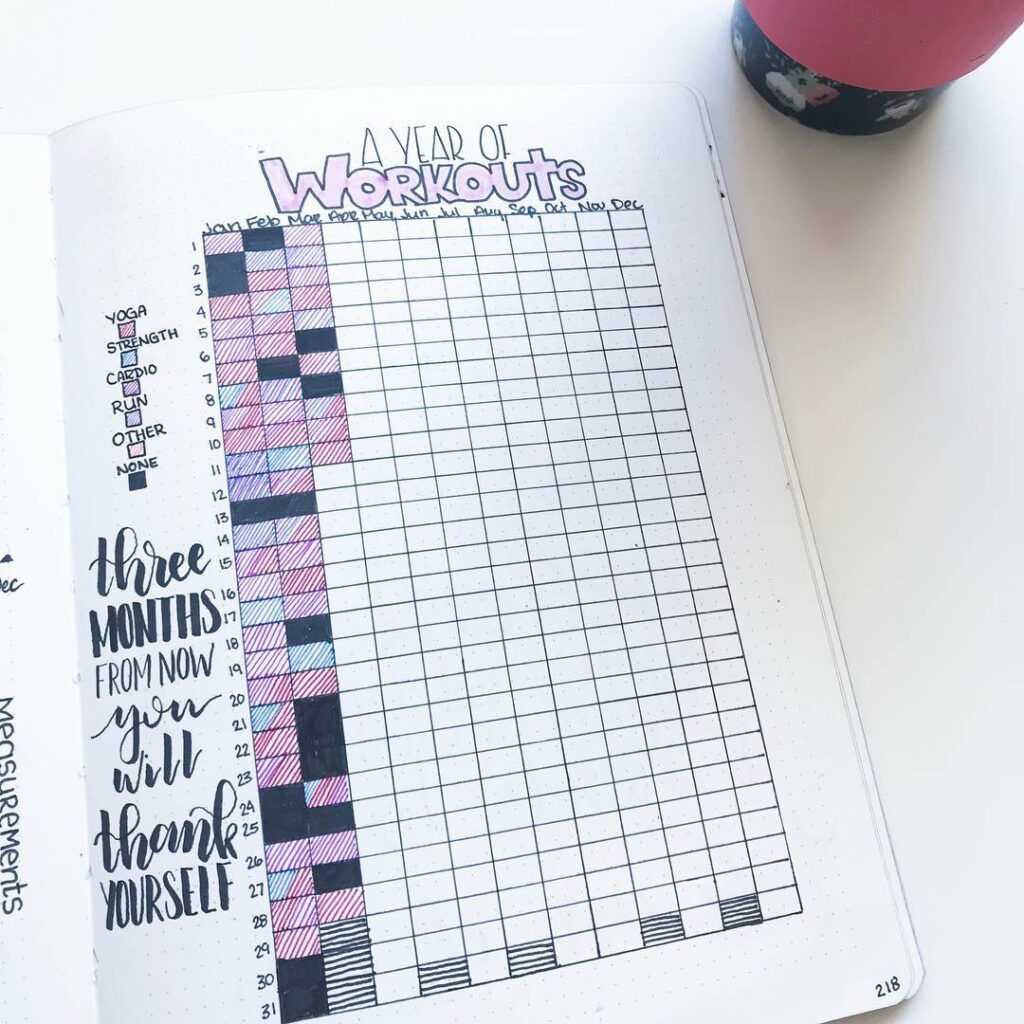 A YEAR OF
WORKOUTS
Jan Feb Mar Apr May Jun Jul Aug Sep Oct Nov Dec
1
2
3
4
5
6
7
8
9
10
11
12
13
14
15
16
17
18
19
20
21
22
23
24
25
26
27
28
29
30
31
YOGA
STRENGTH
CARDIO
RUN
OTHER
NONE
three
MONTHS
FROM NOW
you
will
thank
YOURSELF
218
Measurements